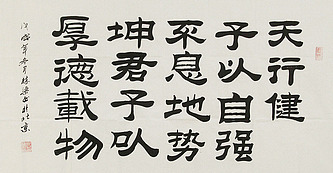 天行健
子以自强
不息地势
坤君子以
厚德載物